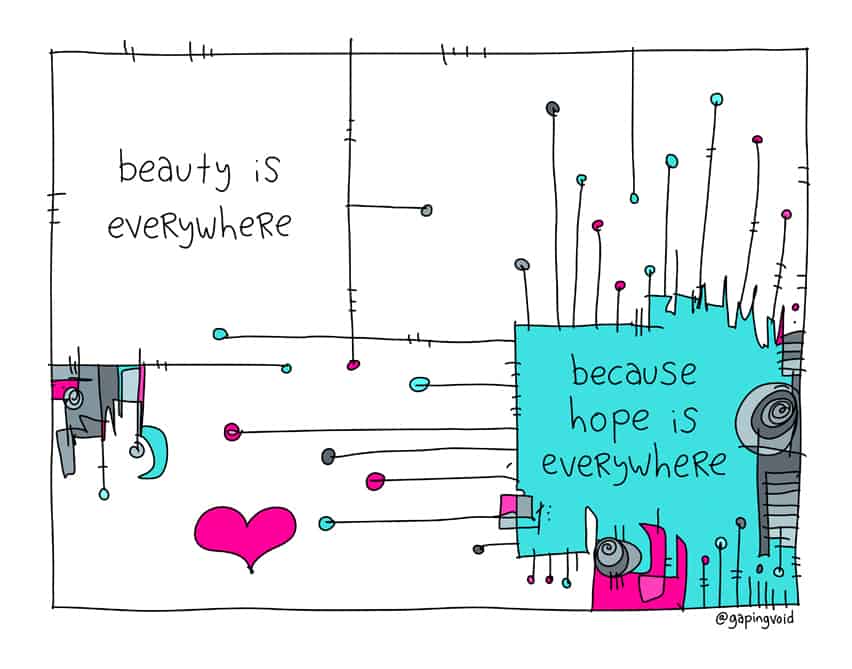 beauty is
everywhere
because
hope is
everywhere
@gapingvoid